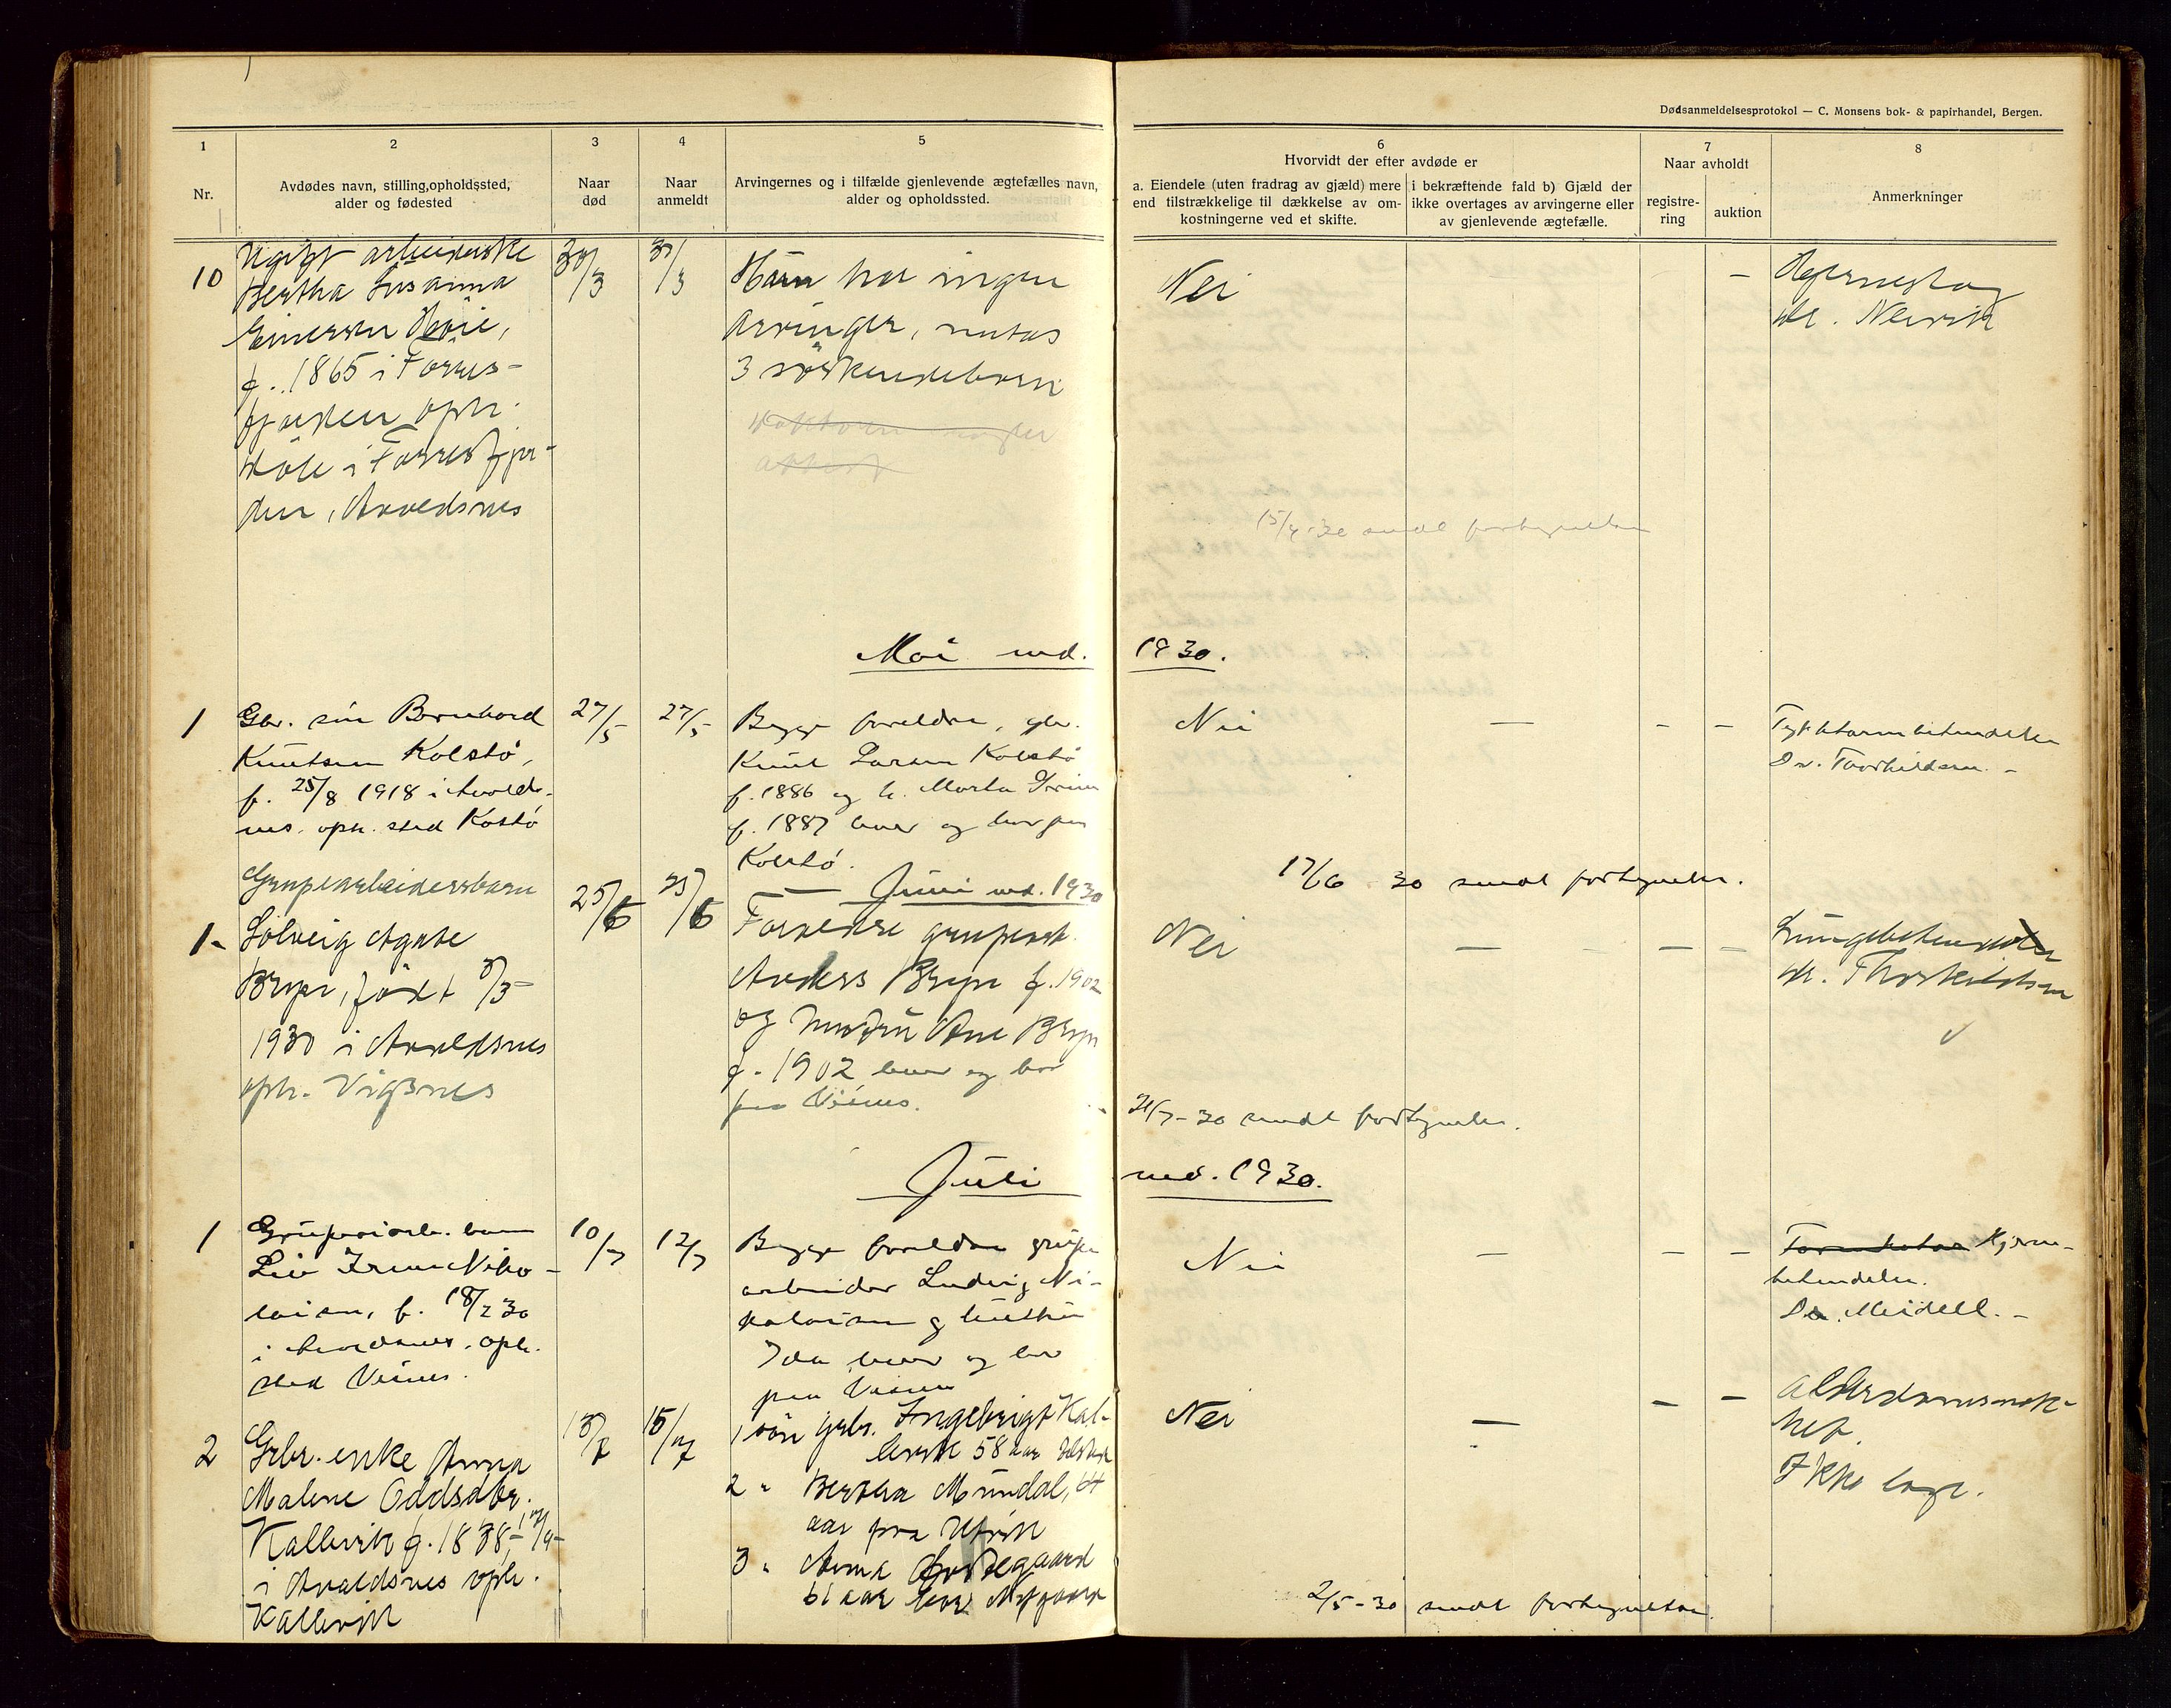 Dødsanmeldelsesprotokol — C. Monsens bok- & papirhandel, Bergen.
1
Nr.
2
Avdødes navn, stilling, opholdssted,
alder og fødested
3
Naar
død
4
Naar
anmeldt
5
Arvingernes og i tilfælde gjenlevende ægtefælles navn,
alder og opholdssted.
6
Hvorvidt der efter avdøde er
a. Eiendele (uten fradrag av gjæld) mere
end tilstrækkelige til dækkelse av om-
kostningerne ved et skifte.
i bekræftende fald b) Gjæld der
ikke overtages av arvingerne eller
av gjenlevende ægtefælle.
7
Naar avholdt
registre-
ring
auktion
8
Anmerkninger
10
Ugift arbeiderske
Bertha Susanna
Einersen
f. 1865 i Førres-
fjorden oph.
i Førresfjor-
den, Avaldsnes
30/3
31/3
har ingen
arvinger, untas
3 søskendebarn
Nei
—
Hjerneslag
dr. Nervik
15/4-30 sendt fortegnelsen
Mai md. 1930.
1
Gbr. søn Bernhard
Knutsen Kolstø,
f. 25/8 1918 i Avalds-
nes. oph. sted Kolstø
27/5
27/5
Begge foreldre, gbr.
Knut Larsen Kolstø
f. 1886 og h. Marta
f. 1887 lever og bor paa
Kolstø.
Nei
—
—
—
Dr. Thorkildsen. -
17/6 30 sendt fortegnelse.
Juni md. 1930
1-
Grupearbeidersbarn
Solveig Agate
født
1930 i Avaldsnes
oph. Vigsnes
25/6
25/6
Foreldre grupearb.
Anders f. 1902
og hustru Ane
f. 1902 lever og bor
paa Visnes.
Nei
—
—
—
Lungebetendelse
dr. Thorkildsen
21/7-30 sendt fortegnelse.
Juli md. 1930.
1
barn
Liv Irene Niko-
laisen, f. 18/2 30
i Avaldsnes. oph.
sted Visnes.
10/7
12/7
Begge foreldre grupe
arbeider Ludvig Ni-
kolaisen og hustru
Ida lever og bor
paa Visnes
Nei
—
—
—
Hjerne-
betendelse.
Dr. Meidell. -
2
Gbr. enke Anna
Malene Oddsdtr.
Kallevik f. 1838,
i Avaldsnes oph.
Kallevik
13/7
15/7
1 søn gbr. Ingebrigt Kal-
levik 58 aar
2 " Bertha Mundal,
aar paa
3 " Anna
61 aar bor
Nei
—
—
—
Alderdomssvak-
het.
Ikke læge.
2/5-30 sendt fortegnelse